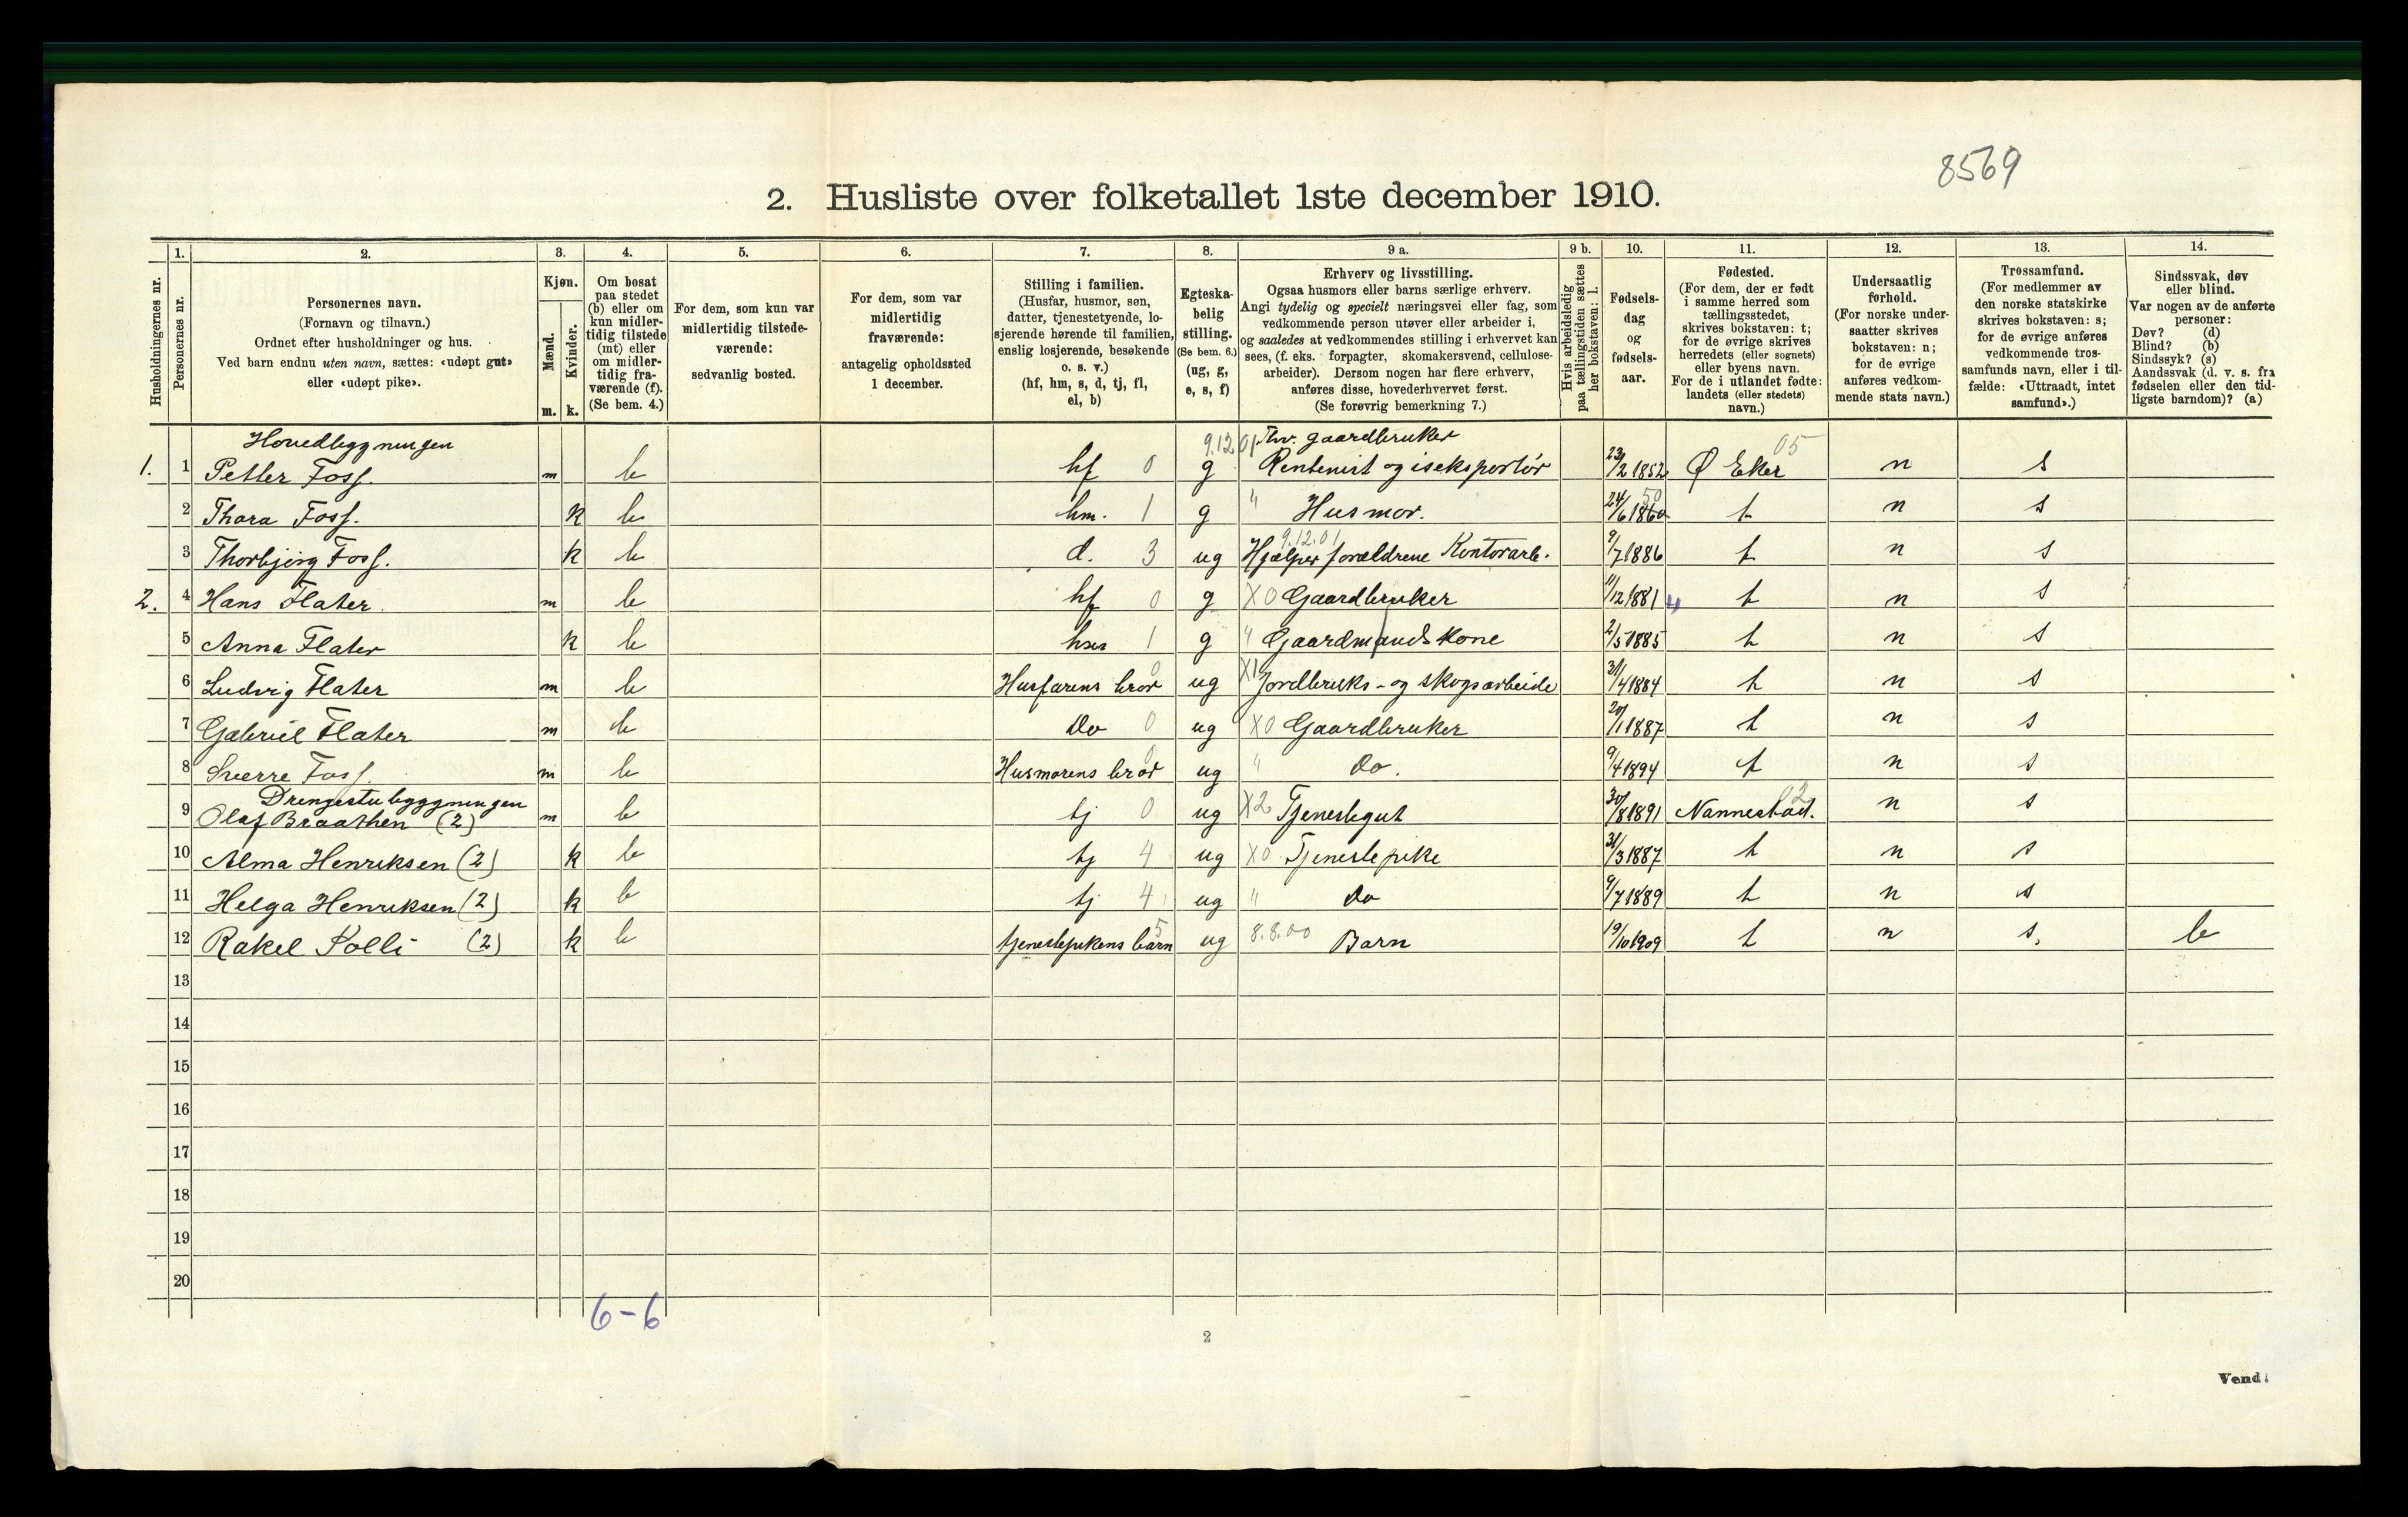 8569
2. Husliste over folketallet 1ste december 1910.
Husholdningernes nr.
1.
Personernes nr.
2.
Personernes navn.
(Fornavn og tilnavn.)
Ordnet efter husholdninger og hus.
Ved barn endnu uten navn, sættes: «udøpt gut»
eller «udøpt pike».
3.
Kjøn.
Mænd.
Kvinder.
m. k.
4.
Om bosat
paa stedet
(b) eller om
kun midler-
tidig tilstede
(mt) eller
om midler-
tidig fra-
værende (f).
(Se bem. 4.)
5.
For dem, som kun var
midlertidig tilstede-
værende:
sedvanlig bosted.
6.
For dem, som var
midlertidig
fraværende:
antagelig opholdssted
1 december.
7.
Stilling i familien.
(Husfar, husmor, søn,
datter, tjenestetyende, lo-
sjerende hørende til familien,
enslig losjerende, besøkende
o. s. v.)
(hf, hm, s, d, tj, fl,
el, b)
8.
Egteska-
belig
stilling.
(Se bem. 6.)
(ug, g,
e, s, f)
9 a.
Erhverv og livsstilling.
Ogsaa husmors eller barns særlige erhverv.
Angi tydelig og specielt næringsvei eller fag, som
vedkommende person utøver eller arbeider i,
og saaledes at vedkommendes stilling i erhvervet kan
sees, (f. eks. forpagter, skomakersvend, cellulose-
arbeider). Dersom nogen har flere erhverv,
anføres disse, hovederhvervet først.
(Se forøvrig bemerkning 7.)
9 b.
Hvis arbeidsledig
paa tællingstiden sættes
her bokstaven: l.
10.
Fødsels-
dag
og
fødsels-
aar.
11.
Fødested.
(For dem, der er født
i samme herred som
tællingsstedet,
skrives bokstaven: t;
for de øvrige skrives
herredets (eller sognets)
eller byens navn.
For de i utlandet fødte:
landets (eller stedets)
navn.)
12.
Undersaatlig
forhold.
(For norske under-
saatter skrives
bokstaven: n;
for de øvrige
anføres vedkom-
mende stats navn.)
13.
Trossamfund.
(For medlemmer av
den norske statskirke
skrives bokstaven: s;
for de øvrige anføres
vedkommende tros-
samfunds navn, eller i til-
fælde: «Uttraadt, intet
samfund».)
14.
Sindssvak, døv
eller blind.
Var nogen av de anførte
personer:
Døv? (d)
Blind? (b)
Sindssyk? (s)
Aandssvak (d. v. s. fra
fødselen eller den tid-
ligste barndom)? (a)
Hovedbygningen 9.12.01 Thv. gaardbruker 05
1. 1 Petter Foss. m b hf 0 g Rentenist og iseksportør 23/2 1852 Ø Eker n s
2 Thora Foss. k b hm. 1 g " Husmor. 24/6 1860 50 t n s
9.12.01
3 Thorbjørg Foss. k b d. 3 ug Hjælper forældrene Kontorarb. 9/7 1886 t n s
2. 4 Hans Flater. m b hf 0 g X0 Gaardbruker 11/12 1881 4 t n s
5 Anna Flater k b hm 1 g " Gaardmandskone 2/5 1885 t n s
6 Ludvig Flater m b Husfarens bror 0 ug X1 Jordbruks- og skogsarbeide 31/4 1884 t n s
7 Gabriel Flater m b Do 0 ug X0 Gaardbruker 20/1 1887 t n s
8 Sverre Foss. m b Husmorens bror 0 ug " Do. 9/4 1894 t n s
Drengestubyggningen
9 Olaf Braathen (2) m b tj 0 ug X2 Tjenestegut 30/8 1891 Nannestad. 02 n s
10 Alma Henriksen (2) k b tj 4 ug X0 Tjenestepike 31/3 1887 t n s
11 Helga Henriksen (2) k b tj 4 ug " Do 9/7 1889 t n s
12 Rakel Kolli (2) k b tjenestepikens barn 5 ug 8.8.00 Barn 19/10 1909 t n s. b
13
14
15
16
17
18
19
20
6-6
2
Vend!